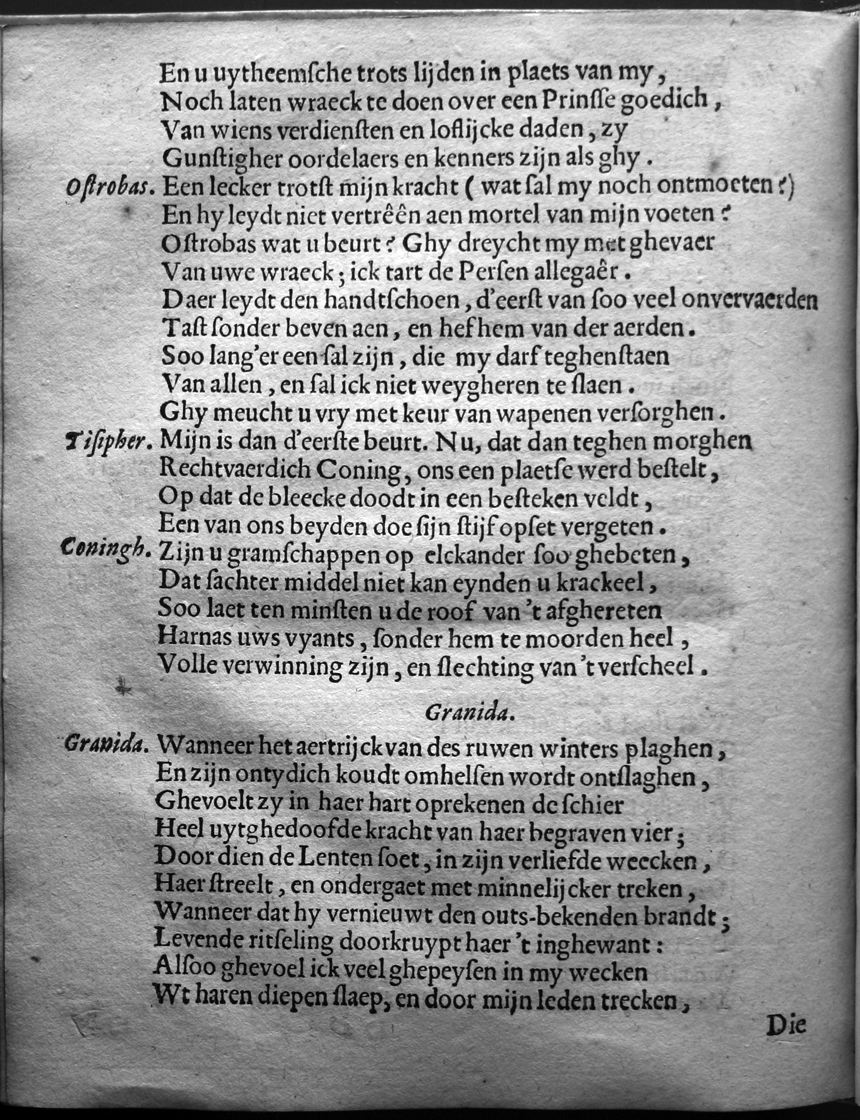 En u uytheemſche trots lijden in plaets van my,
Noch laten wraeck te doen over een Prinſſe goedich,
Van wiens verdienſten en loflijcke daden, zy
Gunſtigher oordelaers en kenners zijn als ghy.
Oſtrobas. Een lecker trotſt mijn kracht (wat ſal my noch ontmoeten?)
En hy leydt niet vertrêên aen mortel van mijn voeten?
Oſtrobas wat u beurt? Ghy dreycht my met ghevaer
Van uwe wraeck; ick tart de Perſen allegaêr.
Daer leydt den handtſchoen, d'eerſt van ſoo veel onvervaerden
Taſt ſonder beven aen, en hef hem van der aerden.
Soo lang'er een ſal zijn, die my darf teghenſtaen
Van allen, en ſal ick niet weygheren te ſlaen.
Ghy meucht u vry met keur van wapenen verſorghen.
Tiſipher. Mijn is dan d'eerſte beurt. Nu, dat dan teghen morghen
Rechtvaerdich Coning, ons een plaetſe werd beſtelt,
Op dat de bleecke doodt in een beſteken veldt,
Een van ons beyden doe ſijn ſtijf opſet vergeten.
Coningh. Zijn u gramſchappen op elckander ſoo ghebeten,
Dat ſachter middel niet kan eynden u krackeel,
Soo laet ten minſten u de roof van 't afghereten
Harnas uws vyants, ſonder hem te moorden heel,
Volle verwinning zijn, en ſlechting van 't verſcheel.
Granida.
Granida. Wanneer het aertrijck van des ruwen winters plaghen,
En zijn ontydich koudt omhelſen wordt ontſlaghen,
Ghevoelt zy in haer hart oprekenen de ſchier
Heel uytghedoofde kracht van haer begraven vier;
Door dien de Lenten ſoet, in zijn verliefde weecken,
Haer ſtreelt, en ondergaet met minnelijcker treken,
Wanneer dat hy vernieuwt den outs-bekenden brandt;
Levende ritſeling doorkruypt haer 't inghewant:
Alſoo ghevoel ick veel ghepeyſen in my wecken
Wt haren diepen ſlaep, en door mijn leden trecken,
Die